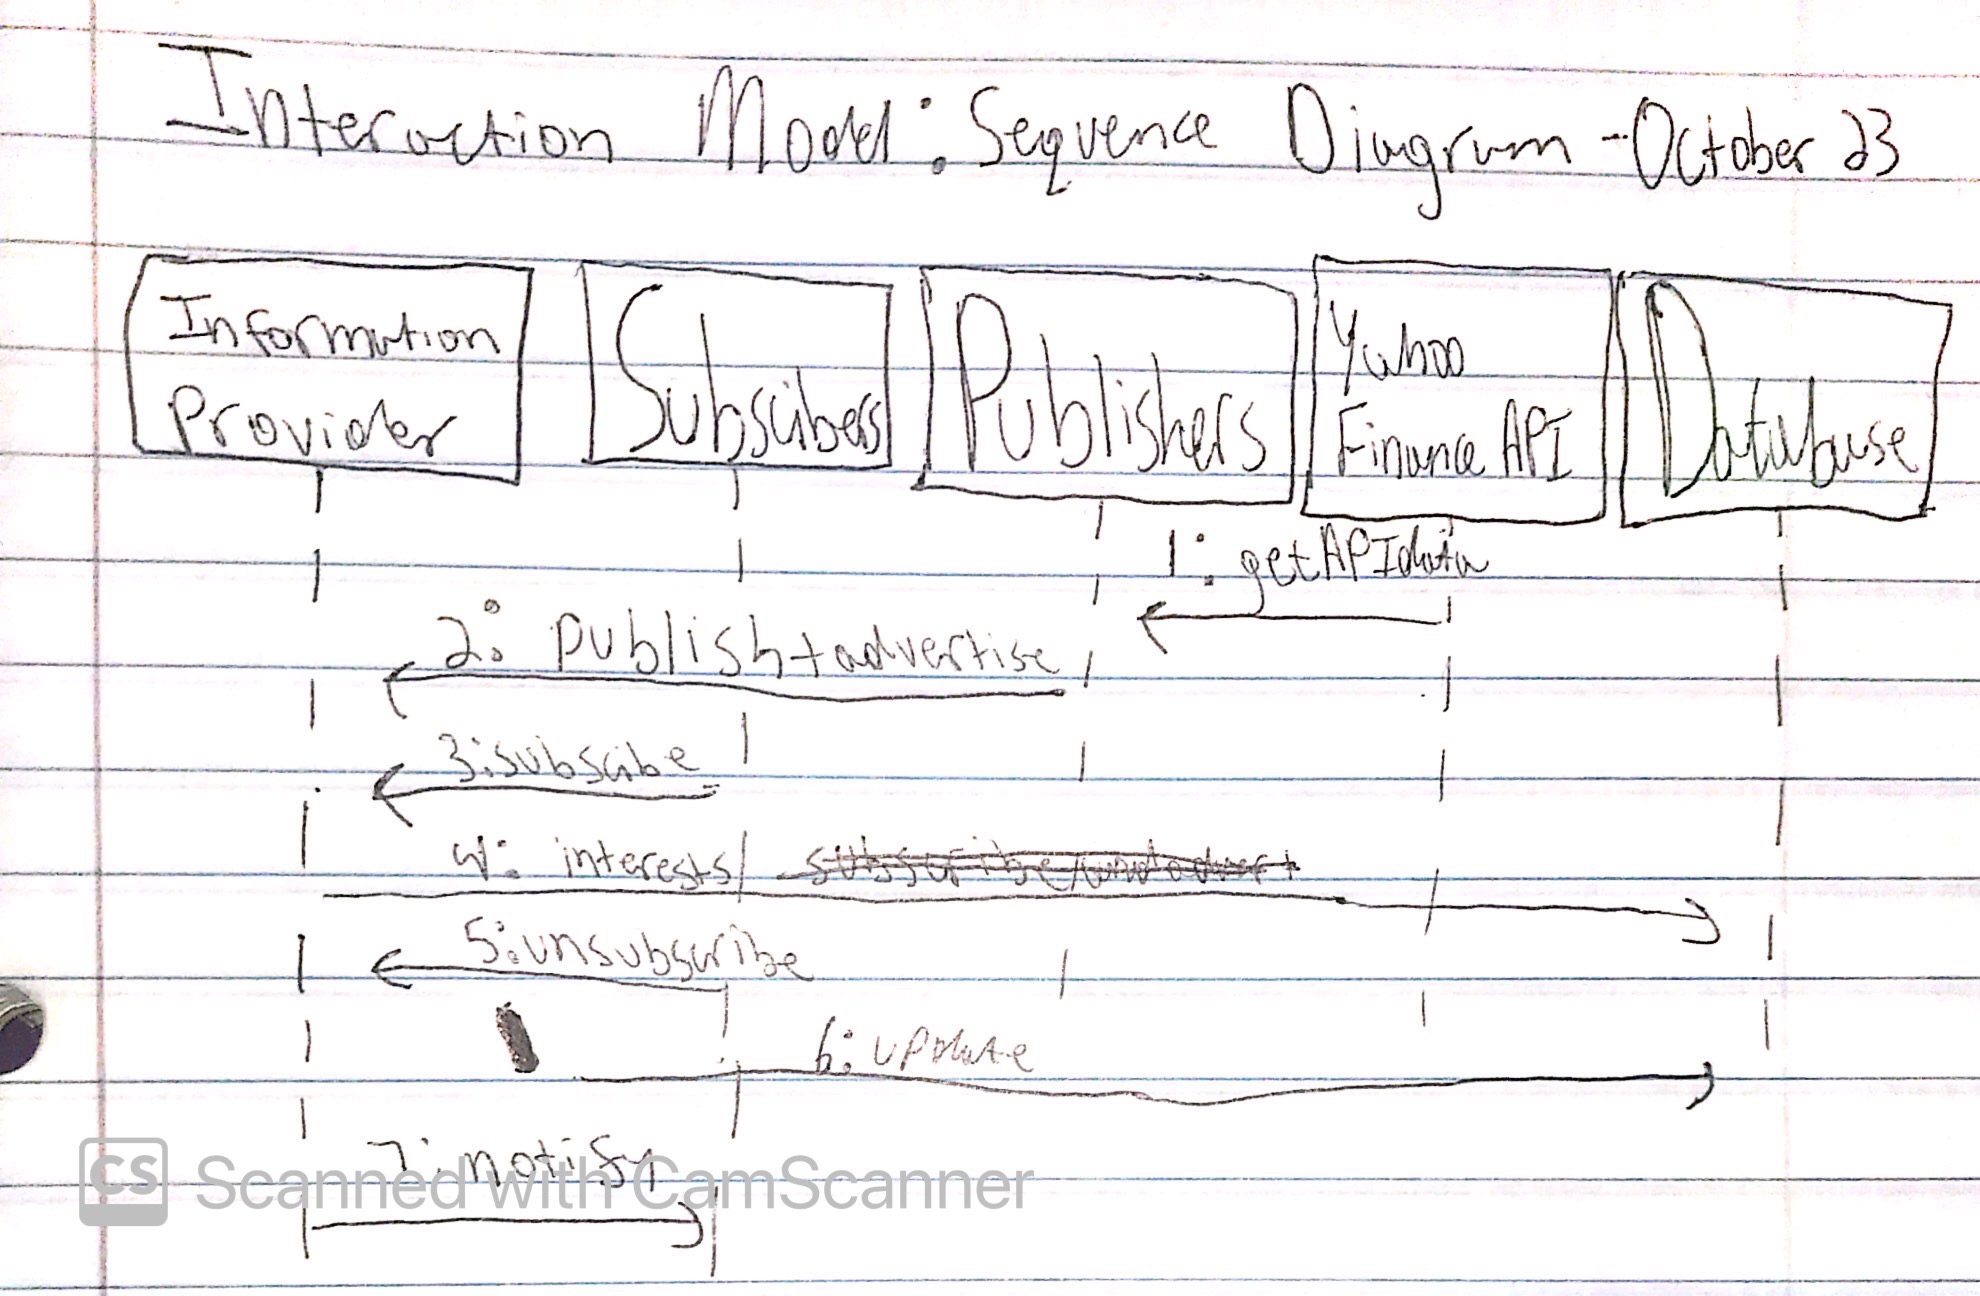 Interaction Model: Sequence Diagram - October 23
Information
Provider
Subscibers
Publishers
Yahoo
Finance API
Database
1: getAPIdata
2: Publish+advertise
3:subscibe
4: interests
5:unsubscribe
6: update
7: notify
CS Scanned with CamScanner